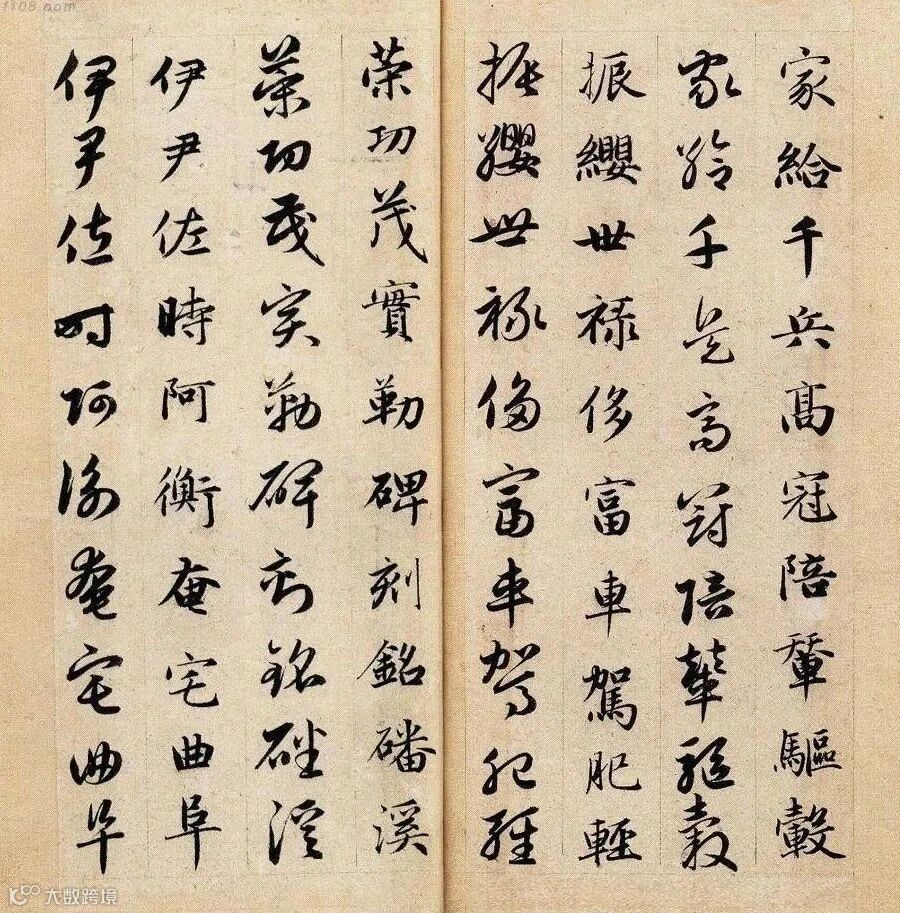 家給千兵髙冠陪輦驅轂
家給千兵高冠陪輦驅轂
振纓世禄侈富車駕肥輕
振纓世禄侈富車駕肥輕
策功茂實勒碑刻銘磻溪
策功茂實勒碑刻銘磻溪
伊尹佐時阿衡奄宅曲阜
伊尹佐時阿衡奄宅曲阜
大数跨境